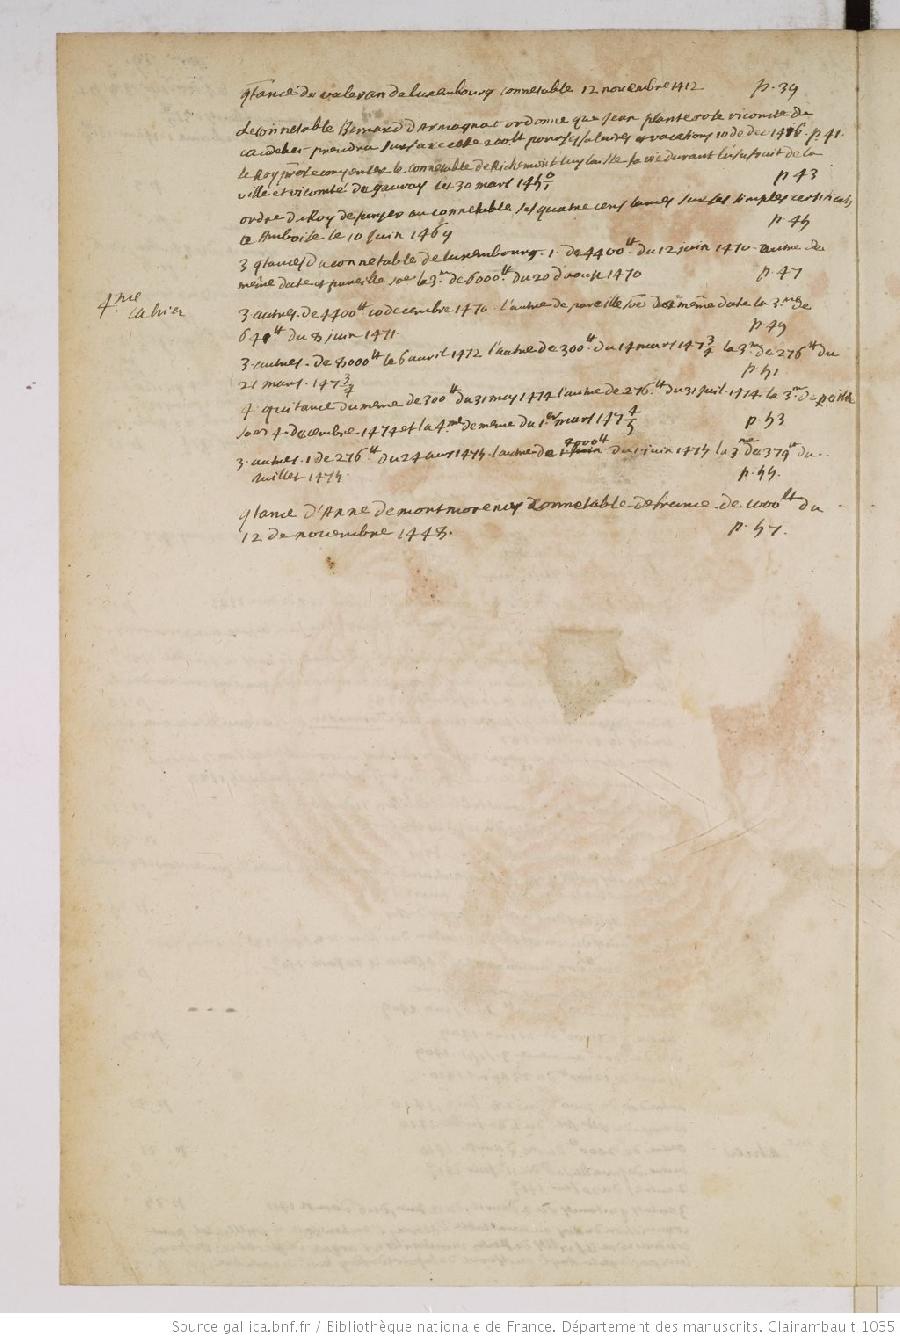 qtance de valeran de luxembourg connetable 12 novembre 1412 p. 39
le connetable Bernard D'Armagnac ordonne que Jean plante rose vicomte de
caudebec prendra sur sa recette pour ses salaires et vacations 10 de dec 1416. p. 41.
le Roy le connetable de Richemont sa vie durant l'usufruit de la
ville et vicomté de gavray le 30 mars 1450/1 p 43
ordre du Roy de payer au connetable ses quatre cens lances sur ses simples certificats
a Amboise le 10 juin 1469 p. 45
3 qtances du connetable de luxembourg. 1. de 4400 tt du 12 juin 1470. autre du
meme date et pareille somme la 3me de 6000 tt du 20 d'aoust 1470 p. 47
4me
cahier
3 autres. de 4400 tt 10 decembre 1470. l'autre de pareille de meme date la 3me de
640 tt du 8 juin 1471. p. 49
3 autres. de 8000 tt le 6 avril 1472 l'autre de 300 tt du 14 mars 1473/4 la 3me de 276 tt du
21 mars. 1473/4 p. 51
4 quitance du meme de 300 tt du 31 may 1474 l'autre de 276 tt du 31 juil. 1474 la 3me de pareille
4 decembre 1474 et la 4me de meme du 1er mars 1474/5 p. 53
3 autres. 1 de 276 tt du 24 1475 l'autre de 4000 tt du juin 1475 la 3me de 379 tt du
Juillet 1475 p. 55.
qtance d'Anne de montmorency Connetable de france de 1100 tt du
12 de novembre 1448. p. 57.
Source gallica.bnf.fr / Bibliothèque nationale de France. Département des manuscrits. Clairambault 1035